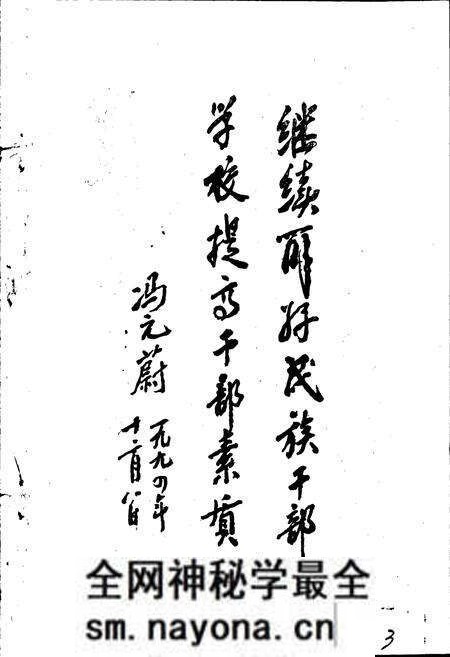 继续办好民族干部
学校提高干部素质
冯元蔚
一九九四年
十二月八日
全网神秘学最全
sm.nayona.cn
3